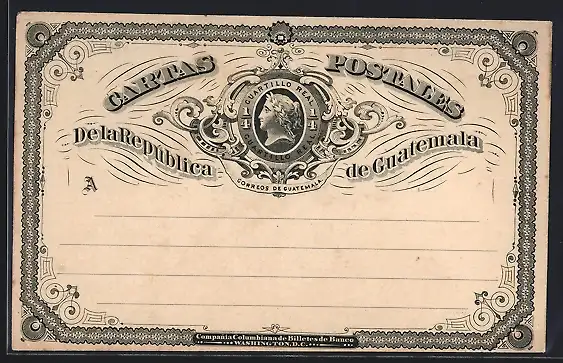 CARTAS POSTALES
De la República de Guatemala
CUARTILLO REAL
1/4 1/4
CUARTILLO REAL
CORREOS DE GUATEMALA
A
Compañia Columbiana de Billetes de Banco
WASHINGTON, D.C.